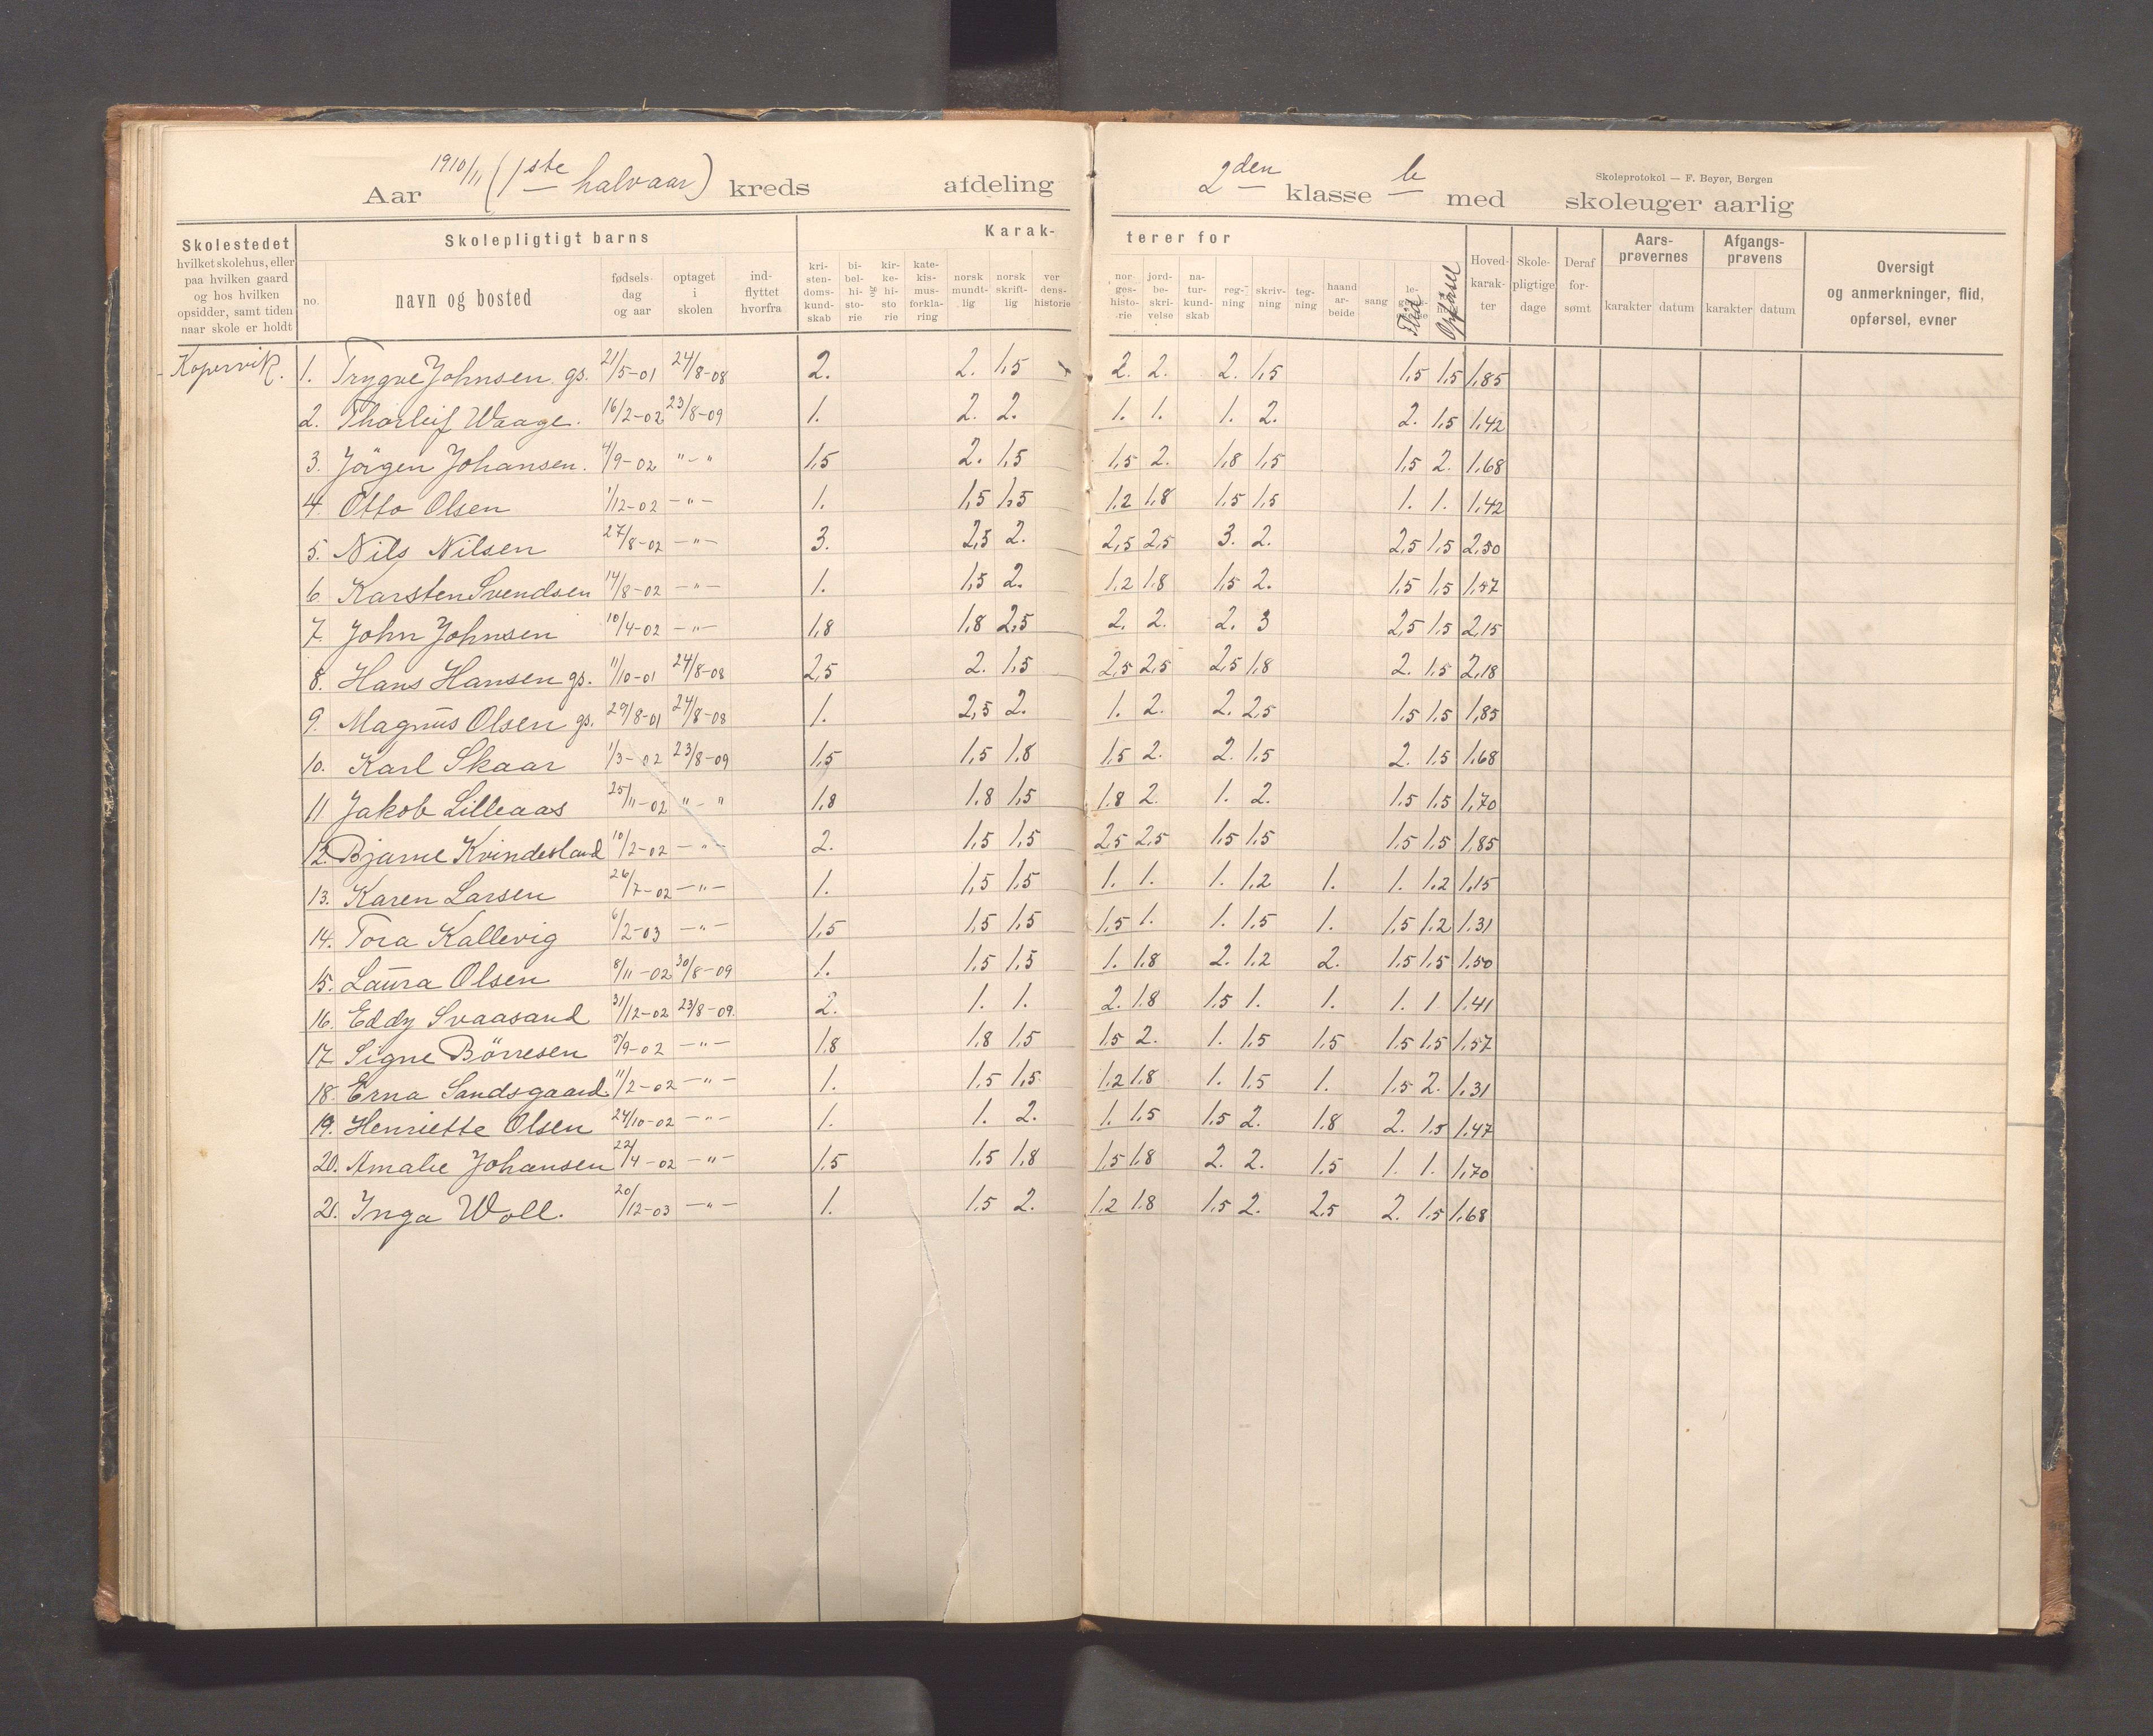 Aar 1910/11 (1ste halvaar) kreds afdeling 2den klasse b med skoleuger aarlig
Skoleprotokol — F. Beyer, Bergen
Skolestedet hvilket skolehus, eller paa hvilken gaard og hos hvilken opsidder, samt tiden naar skole er holdt
Skolepligtigt barns
no. navn og bosted fødselsdag og aar optaget i skolen indflyttet hvorfra
Karakterer for
kristendomskundskab bibelhistorie og kirkehistorie katekismusforklaring norsk mundtlig norsk skriftlig verdenshistorie norgeshistorie jordbeskrivelse naturkundskab regning skrivning tegning haandarbeide sang Flid Opførsel
Hovedkarakter Skolepligtige dage Deraf forsømt
Aarsprøvernes karakter datum
Afgangsprøvens karakter datum
Oversigt og anmerkninger, flid, opførsel, evner
Kopervik. 1. Trygve Johnsen gs. 21/5-01 24/8-08 2. 2. 1,5 2. 2. 2. 1,5 1,5 1,5 1,85
2. Thorleif Waage. 16/2-02 23/8-09 1. 2. 2. 1. 1. 1. 2. 2. 1,5 1,42
3. Jörgen Johansen. 4/9-02 "-" 1,5 2. 1,5 1,5 2. 1,8 1,5 1,5 2. 1,68
4. Otto Olsen 1/12-02 -"- 1. 1,5 1,5 1,2 1,8 1,5 1,5 1. 1. 1,42
5. Nils Nilsen 27/8-02 -"- 3. 2,5 2. 2,5 2,5 3. 2. 2,5 1,5 2,50
6. Karsten Svendsen 14/8-02 -"- 1. 1,5 2. 1,2 1,8 1,5 2. 1,5 1,5
7. John Johnsen 10/4-02 -"- 1,8 1,8 2,5 2. 2. 2. 3 2,5 1,5 2,15
8. Hans Hansen gs. 11/10-01 24/8-08 2,5 2. 1,5 2,5 2,5 2,5 1,8 2. 1,5 2,18
9. Magnus Olsen gs. 29/8-01 24/8-08 1. 2,5 2. 1. 2. 2. 2,5 1,5 1,5 1,85
10. Karl Skaar 1/3-02 23/8-09 1,5 1,5 1,8 1,5 2. 2. 1,5 2. 1,5 1,68
11 Jakob Lilleaas 25/11-02 "-" 1,8 1,8 1,5 1,8 2. 1. 2. 1,5 1,5 1,70
12. Bjarne Kvindesland 10/2-02 -"- 2. 1,5 1,5 2,5 2,5 1,5 1,5 1,5 1,5 1,85
13. Karen Larsen 26/7-02 -"- 1. 1,5 1,5 1. 1. 1. 1,2 1. 1. 1,2 1,15
14. Tora Kallevig 6/2-03 -"- 1,5 1,5 1,5 1,5 1. 1. 1,5 1. 1,5 1,2 1,31
15. Laura Olsen 8/11-02 30/8-09 1. 1,5 1,5 1. 1,8 2. 1,2 2. 1,5 1,5 1,50
16. Eddy Svaasand 31/12-02 23/8-09. 2. 1. 1. 2. 1,8 1,5 1. 1. 1. 1 1,41
17. Signe Börresen 5/9-02 -"- 1,8 1,8 1,5 1,5 2. 1. 1,5 1,5 1,5 1,5 1,57
18. Erna Sandsgaard. 11/2-02 -"- 1. 1,5 1,5 1,2 1,8 1. 1,5 1. 1,5 2. 1,31
19. Henriette Olsen 24/10-02 -"- 1. 1. 2. 1. 1,5 1,5 2. 1,8 2. 1,5 1,47
20. Amalie Johansen 22/4-02 -"- 1,5 1,5 1,8 1,5 1,8 2. 2. 1,5 1. 1. 1,70
21. Inga Woll. 20/12-03 -"- 1. 1,5 2. 1,2 1,8 1,5 2. 2,5 2. 1,5 1,68